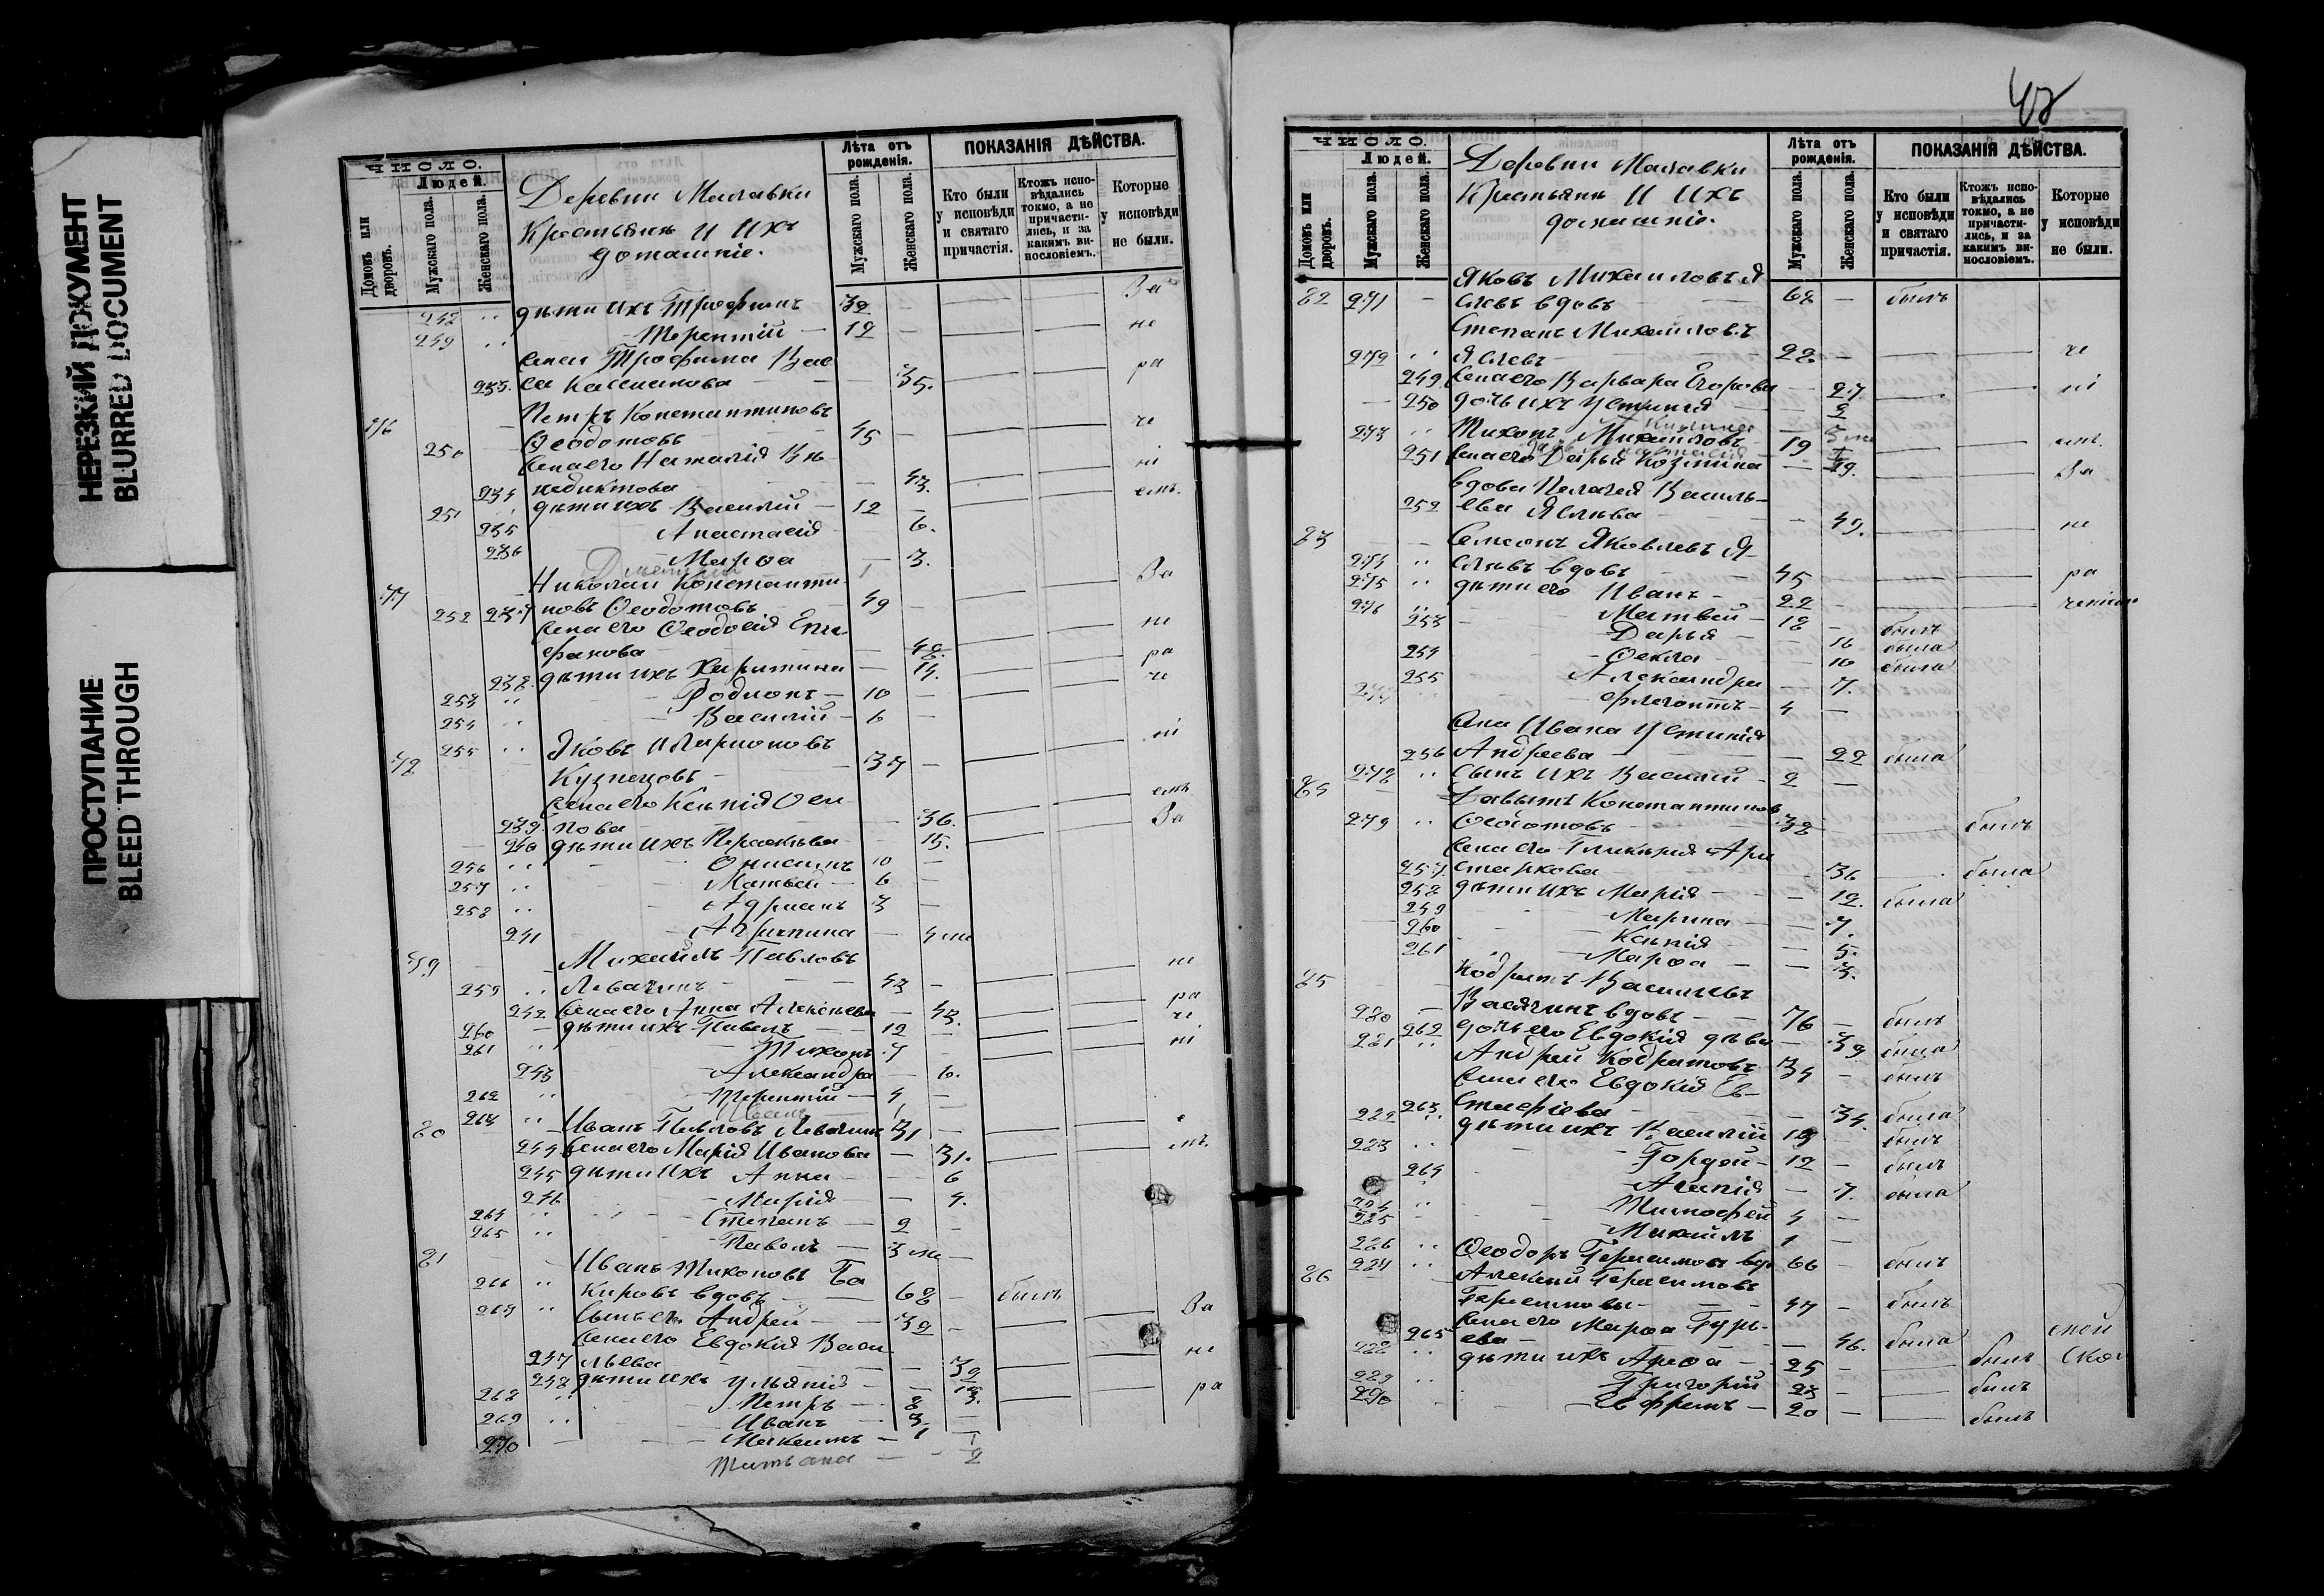 НЕРЕЗКИЙ ДОКУМЕНТ
BLURRED DOCUMENT
ПРОСТУПАНИЕ
BLEED THROUGH
ЧИСЛО.
Людей.
Домовъ или дворовъ.
Мужскаго пола.
Женскаго пола.
Деревни Малавки
Крестьяне и ихъ
домашніе.
Лѣта отъ рожденія.
Мужскаго пола.
Женскаго пола.
ПОКАЗАНІЯ ДѢЙСТВА.
Кто были у исповѣди и святаго причастія.
Ктожъ исповѣдались токмо, а не причастились, и за какимъ винословіемъ.
Которые у исповѣди не были.
248 дѣти ихъ Трофимъ 32 За
249 Терентій 12 не
жена Трофима Вас
233. са Кассианова 35. ра
76 Петръ Константиновъ че
250 Ѳеодотовъ 45
жена его Наталія Ве ні
234 недиктова 43. емъ.
251 дѣти ихъ Василій 12
235 Анастасія 6.
236 Марѳа 3.
Димитрій 1
77 Николай Константи За
252 237 новъ Ѳеодотовъ 49
жена его Ѳеодосія Епи не
фанова 48.
238. дѣти ихъ Харитина 14. ра
253 Родионъ 10 че
254 Василій 6
255 Яковъ Иларионовъ ні
78 Кузнецовъ 37
жена его Ксенія Оси емъ
239. пова 36. За
240 дѣти ихъ Параскева 15.
256 Онисимъ 10
257 Матвей 6
258 Адрианъ 3
241 Агрипина 4 ме
79 Михаилъ Павловъ не
259 Левагинъ 43
242 жена его Анна Алексеева 43. ра
260 дѣти ихъ Павелъ 12 че
261 Тихонъ 7 ні
243 Александра 6.
262 Терентій 4
Иванъ 1
80 263 Иванъ Павловъ Левагинъ 31 е
244 жена его Марія Иванова 31. мъ
245 дѣти ихъ Анна 6
246 Марія 4.
264 Степанъ 2
265 Павелъ 3 ме
81 Иванъ Тихоновъ Ба
266 кировъ вдовъ 68 былъ
267 Сынъ его Андрей 32 За
жена его Евдокія Васи
247 льева 32 не
248 дѣти ихъ Ульянія 13.
268 Петръ 8 ра
269 Иванъ 3
270 Максимъ 1
Татьяна 2
ЧИСЛО.
Людей.
Домовъ или дворовъ.
Мужскаго пола.
Женскаго пола.
Деревни Малавки
Крестьяне и ихъ
домашніе.
Лѣта отъ рожденія.
Мужскаго пола.
Женскаго пола.
ПОКАЗАНІЯ ДѢЙСТВА.
Кто были у исповѣди и святаго причастія.
Ктожъ исповѣдались токмо, а не причастились, и за какимъ винословіемъ.
Которые у исповѣди не были.
Яковъ Михаиловъ Я
82 271 слевъ вдовъ 68 былъ
Степанъ Михайловъ
272 Яслевъ 28. че
249. жена его Варвара Егорова 27 ні
250 дочь ихъ Устинія 2
273 Тихонъ Михаиловъ 19 емъ.
251 жена его Дарья Козмина 19. За
вдова Пелагея Василь
252 ева Яслева 49. не
83 Самсонъ Яковлевъ Я
274 слевъ вдовъ 45 ра
275 дѣти его Иванъ 22 ченіемъ
276 Матвей 18 былъ
253 Дарья 16 была
254 Ѳекла 10 была
255 Александра 7.
277 Флегонтъ 4
жена Ивана Устинія
256 Андреева 22 была
278 Сынъ ихъ Василій 2
84 Давыдъ Константиновъ
279 Ѳеодотовъ 38 былъ
жена его Гликерія Ари
257. стархова 36 была
258 дѣти ихъ Марія 12. была
259 Марина 7.
260 Ксенія 5.
261 Марѳа 3.
85 Кодратъ Васильевъ
280 Васягинъ вдовъ 76 былъ
262 дочь его Евдокія дѣва 39 была
281 Андрей Кодратовъ 34 былъ
жена его Евдокія Ев
263. стафіева 34. была
282 дѣти ихъ Василій 13 былъ
283 Гордей 12 былъ
264 Агапія 7. была
284 Тимофей 4
285 Михаилъ 1
286 Ѳеодоръ Герасимовъ вдо 66 былъ
86 287 Алексей Герасимовъ
Герасимовы 47 былъ
265 жена его Марѳа Гурь
ева 46. была
288 дѣти ихъ Агаѳа 25 былъ
289 Григорій 23 былъ
290 Ефремъ 20 былъ